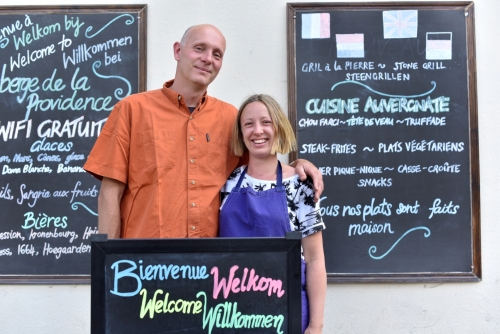 Welkom bij
Welcome to Willkommen bei
berge de la
Providence
WIFI GRATUIT
Glaces
Dame Blanche, Banana
Sangria aux fruits
Bières
Kronenbourg,
1664, Hoegaarden
GRIL à la PIERRE ~ STONE GRILL
STEENGRILLEN
CUISINE AUVERGNATE
CHOU FARCI ~ TÊTE DE VEAU ~ TRUFFADE
STEAK-FRITES ~ PLATS VÉGÉTARIENS
PIQUE-NIQUE ~ CASSE-CROÛTE
SNACKS
nos plats sont faits
maison
Bienvenue Welkom
Welcome Willkommen